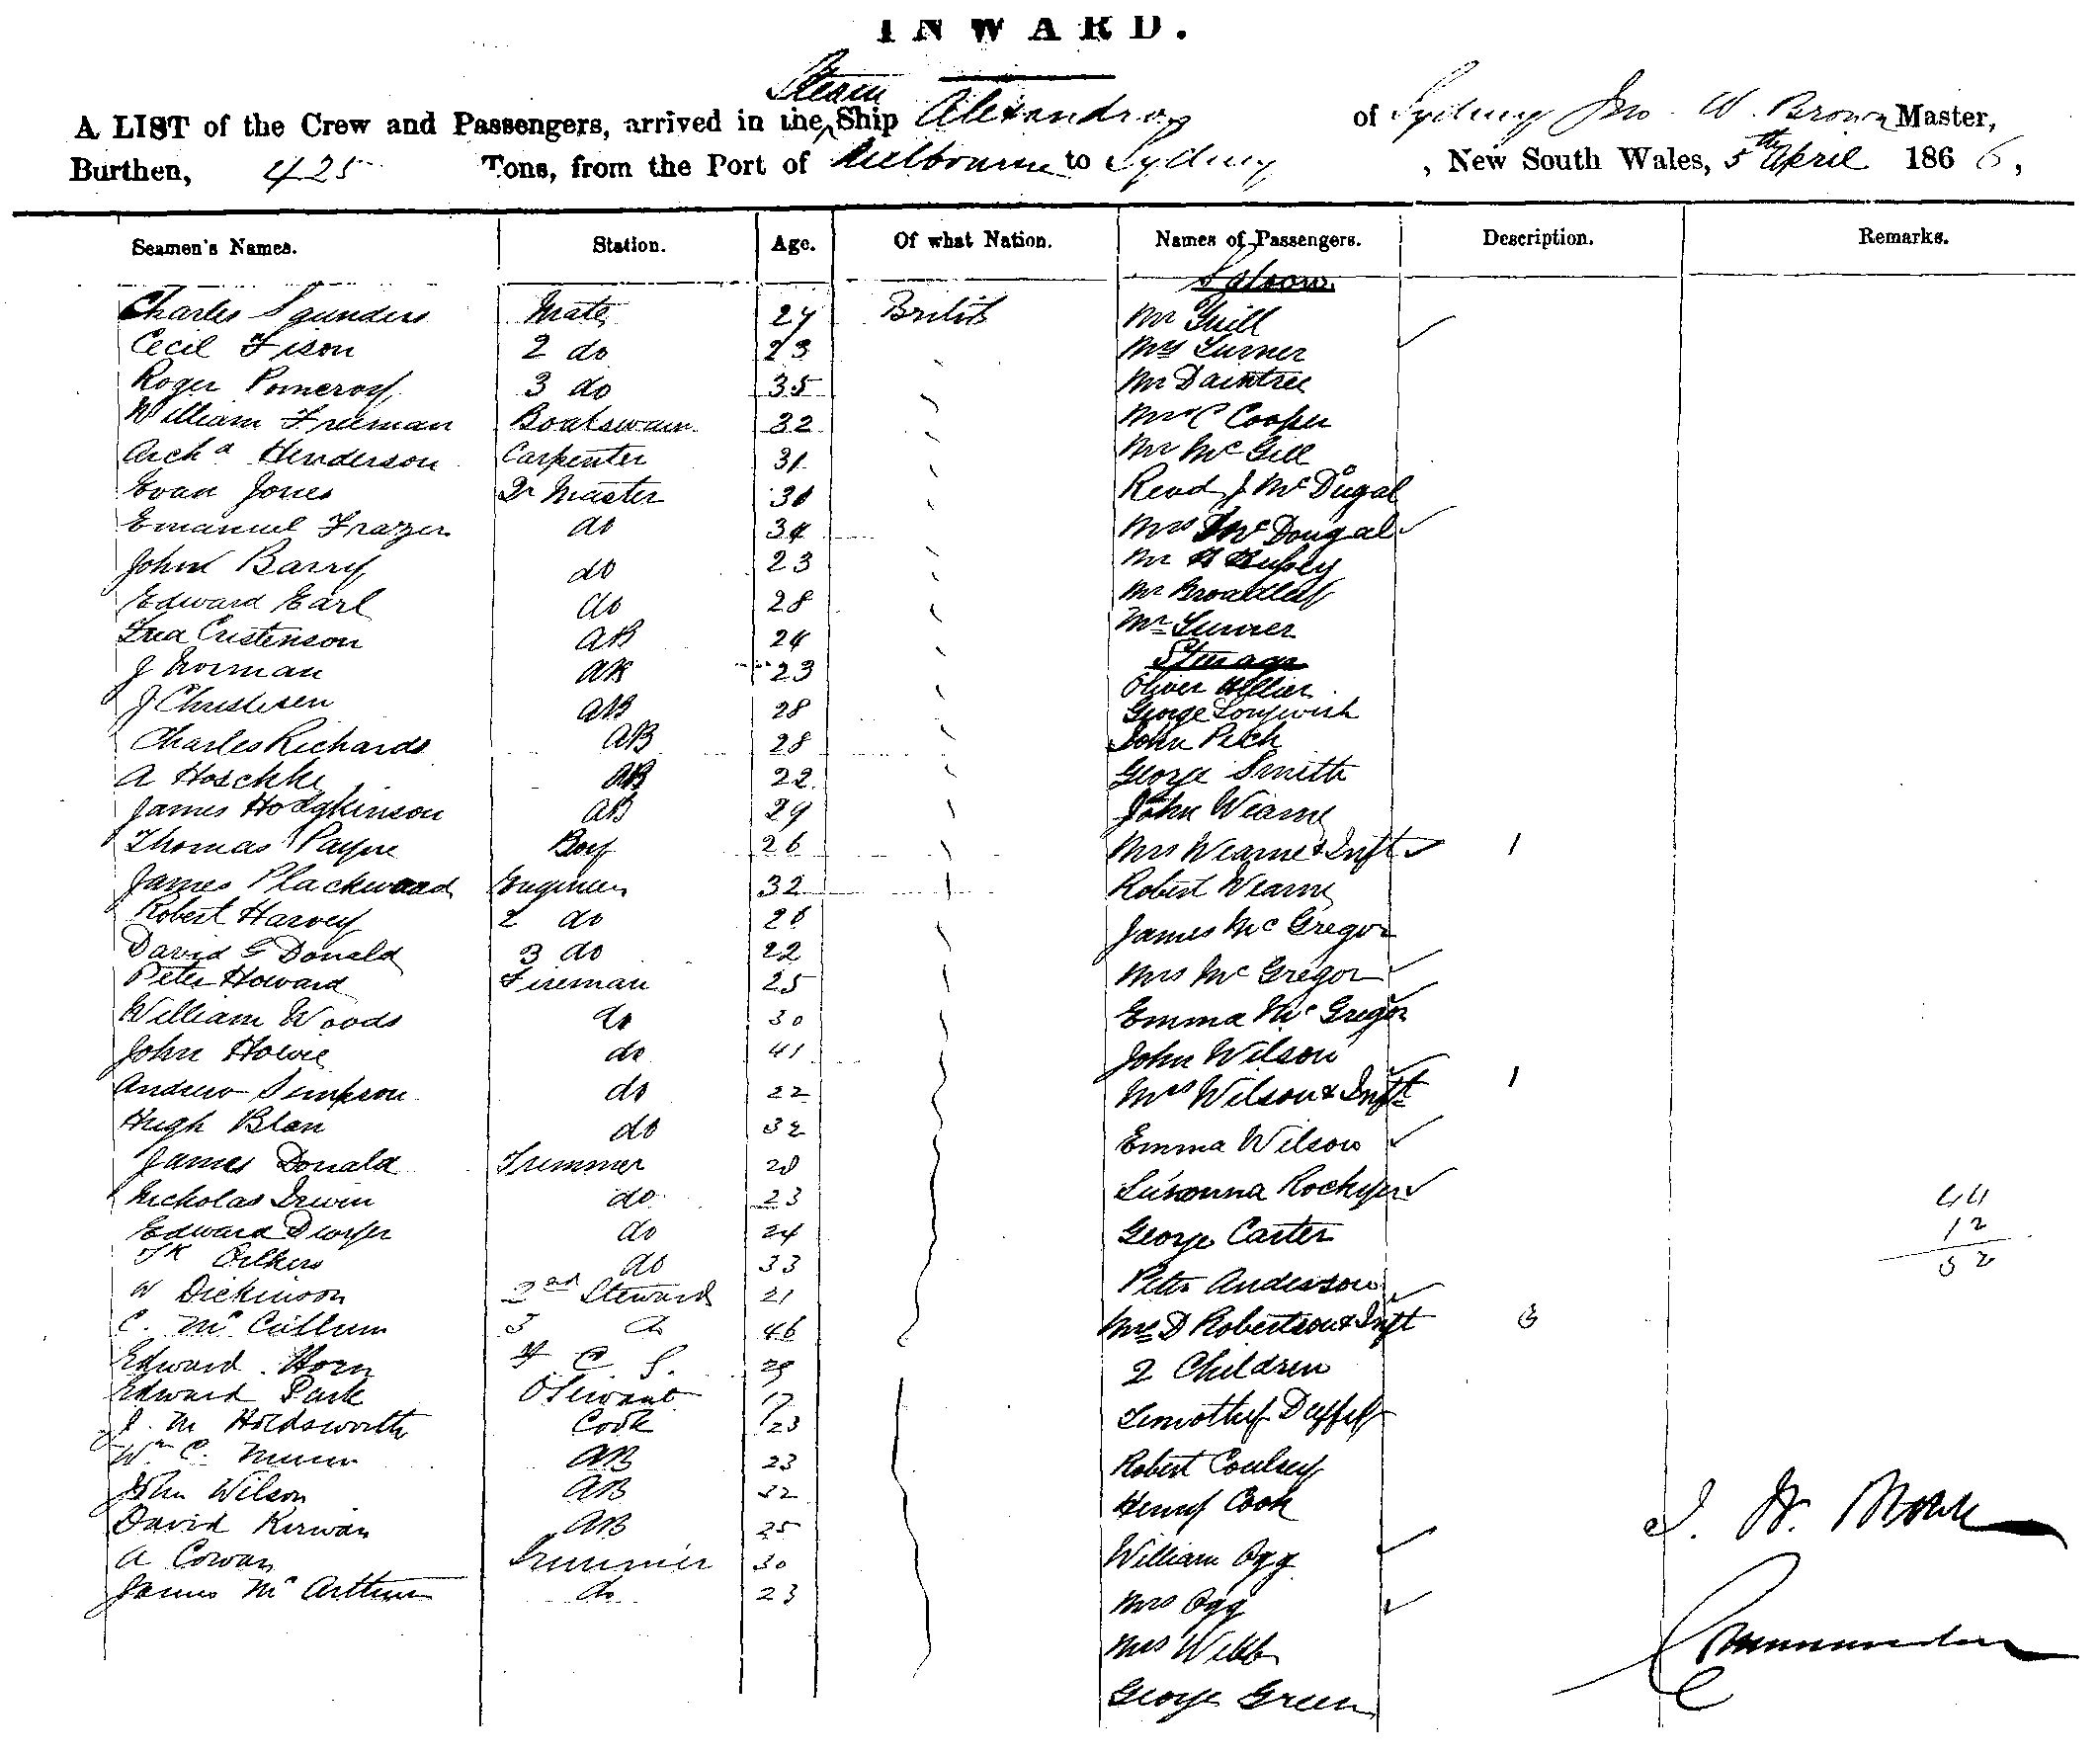 INWARD.
Steam
A LIST of the Crew and Passengers, arrived in the Ship Alexandra of Sydney Jno. W. Brown Master,
Burthen, 425 Tons, from the Port of Melbourne to Sydney, New South Wales, 5th April 1866,
Seamen's Names. Station. Age. Of what Nation. Names of Passengers. Description. Remarks.
Saloon
Charles Saunders Mate 24 British Mr Grill
Cecil Fison 2 do 23 Mrs Turner
Roger Pomeroy 3 do 35 Mr Daintree
William Freeman Boatswain 32 Mr C Cooper
Archd Henderson Carpenter 31 Mr McGill
Evan Jones Qr Master 30 Revd J McDugal
Emanuel Frazer do 34 Mrs McDougal
John Barry do 23 Mr H
Edward Earl do 28 Mr
Fred Cristenson AB 24 Mr Turner
Steerage
J Norman AB 23 Oliver Hellier
J Christesen AB 28 George
Charles Richards AB 28 John Peck
A Hoschke AB 22 George Smith
James Hodgkinson AB 29 John Wearne
Thomas Payne Boy 26 Mrs Wearne & Inft 1
James Plackwood Engineer 32 Robert Wearne
Robert Harvey 2 do 26 James McGregor
David G Donald 3 do 22
Peter Howard Fireman 25 Mrs McGregor
William Woods do 30 Emma McGregor
John Howie do 41 John Wilson
Andrew Simpson do 22 Mrs Wilson & Inft 1
Hugh Blan do 32 Emma Wilson
James Donald Trimmer 28
Nicholas Irwin do 23 Susanna Rockyer 44
Edward Dwyer do 24 George Carter 12
do 33 Peter Anderson 52
W Dickinson 2nd Steward 21
C. McCullum 3 do 46 Mrs D Robertson & Inft 3
Edward Horn 4 C. S. 29 2 Children
Edward Park O Servant 17 Timothy Duffy
J. M Holdsworth Cook 23
Wm C. Munn AB 23 Robert Coulsey
John Wilson AB 32 Henry Cook
David Kirwan AB 25
A Cowan Trimmer 30 William Ogg
James McArthur do 23 Mrs Ogg
Mrs Webb
George Green
J. W. Brown
Commander